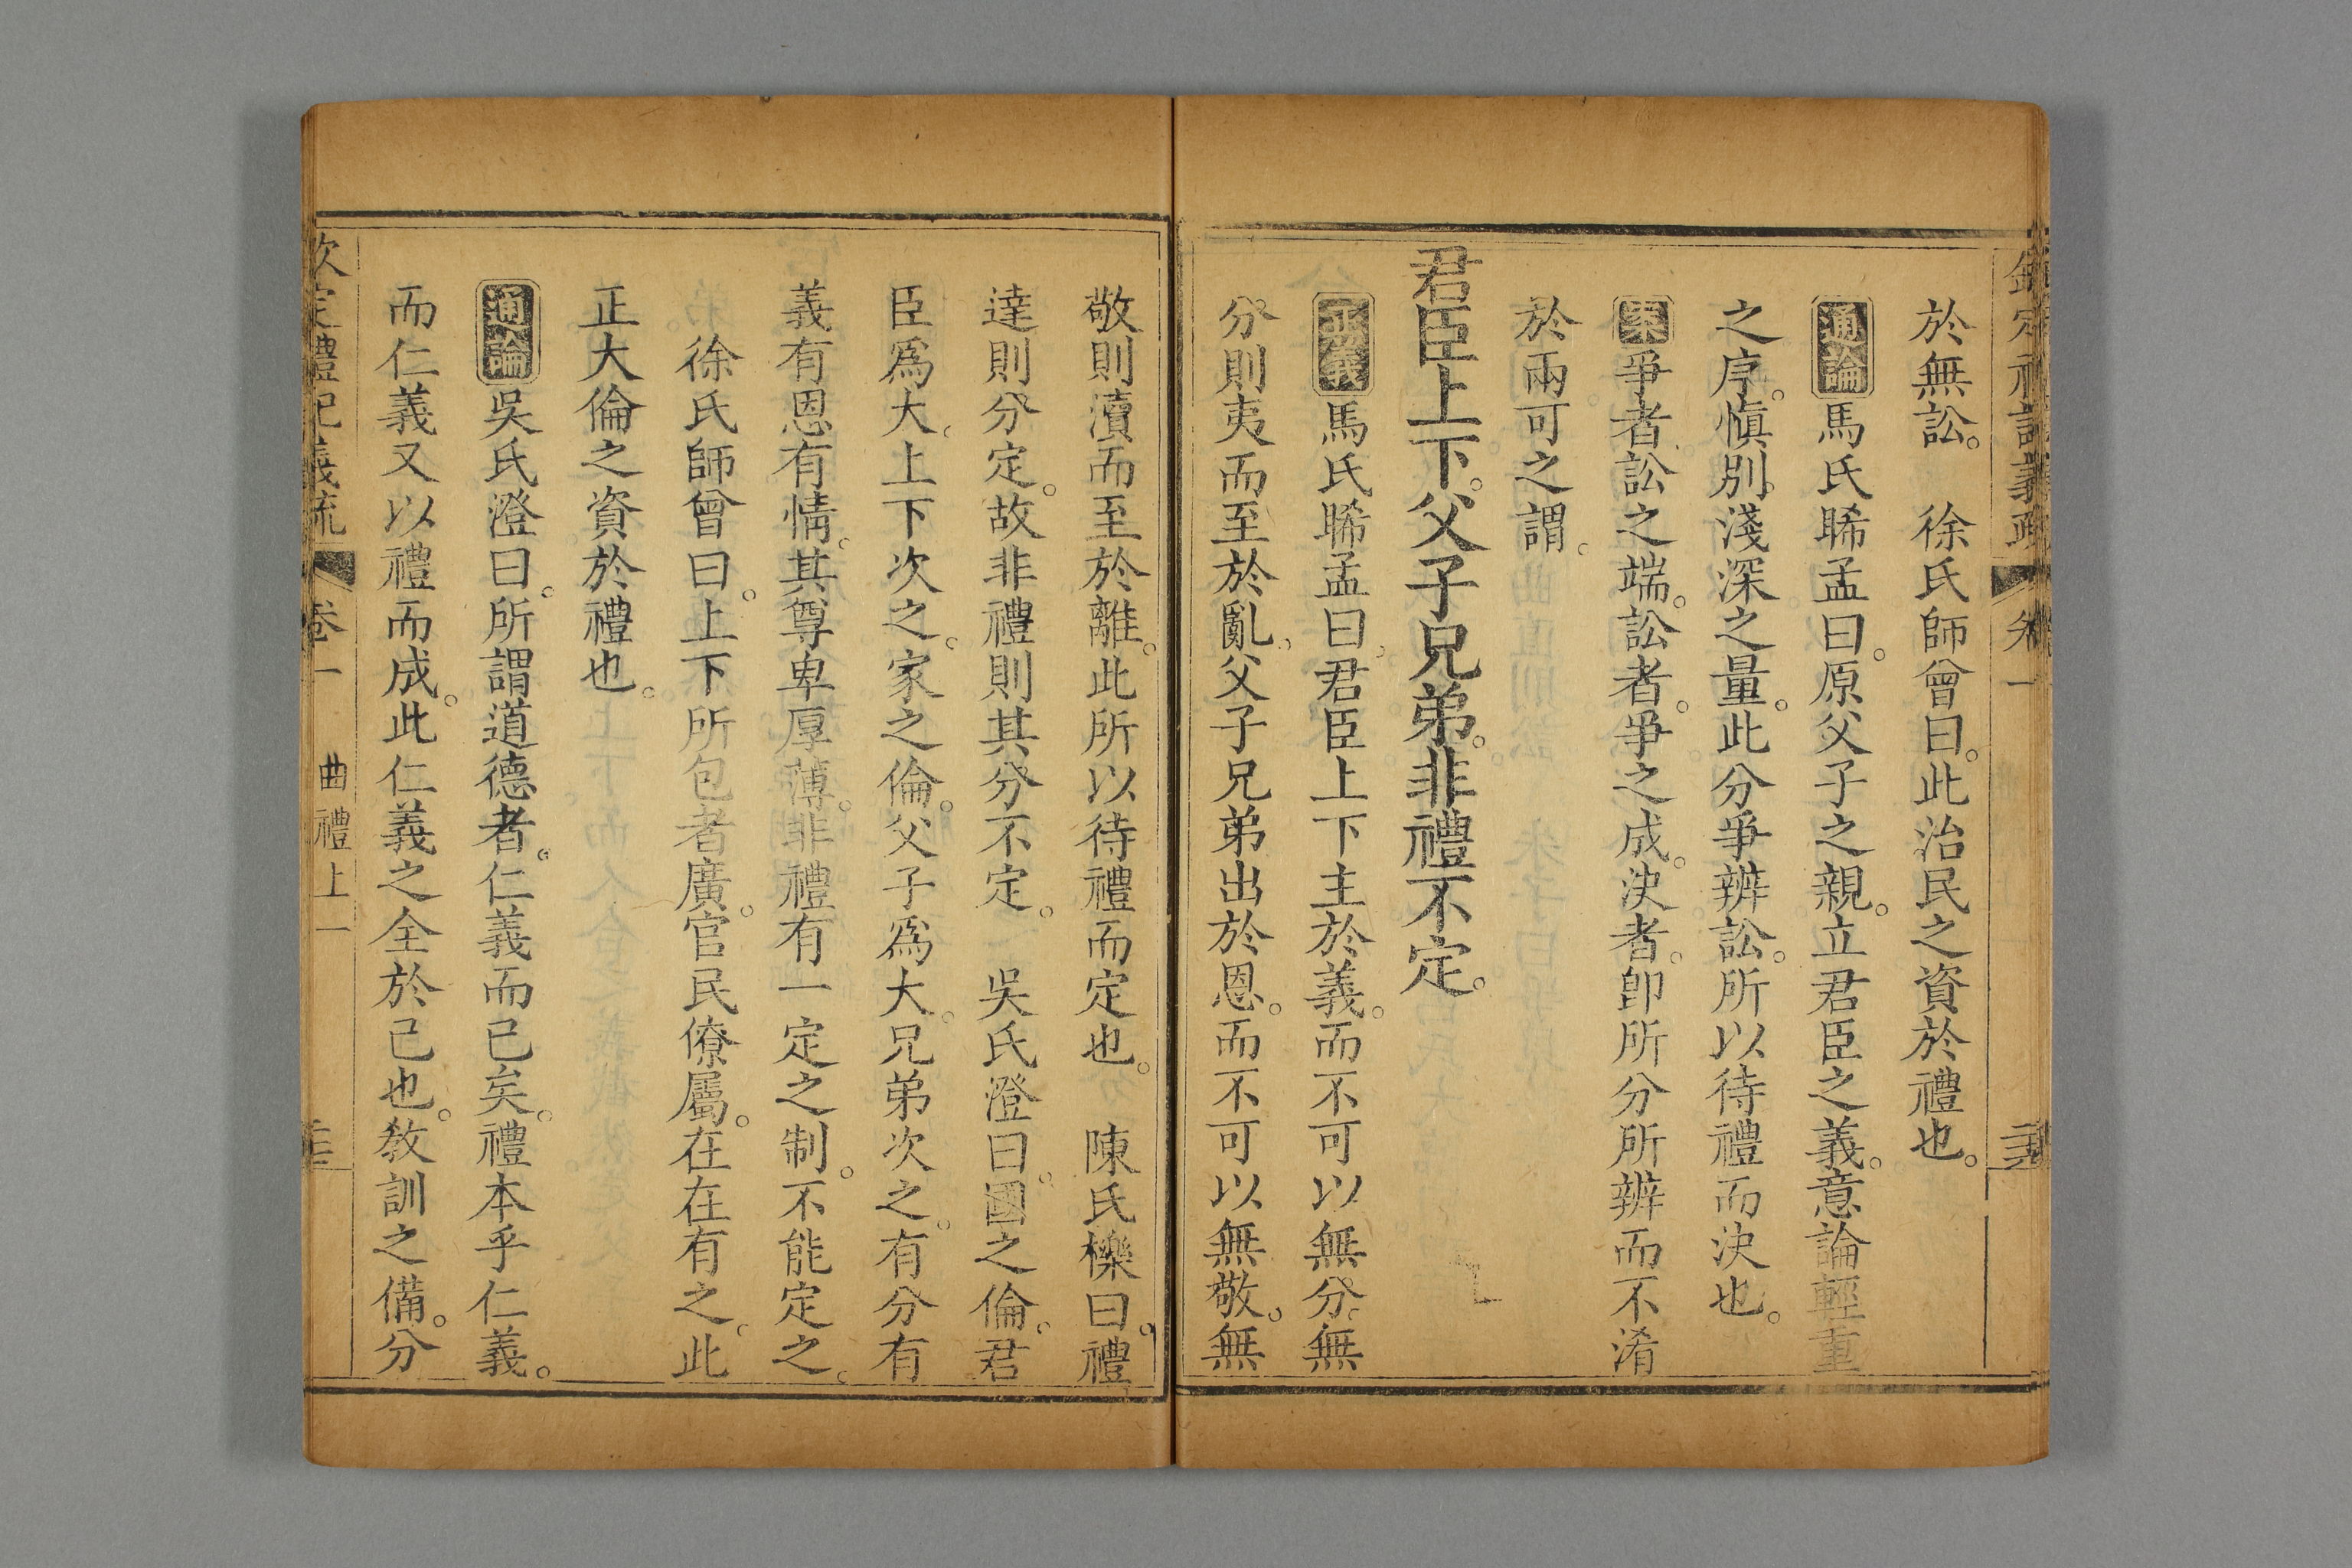 欽定禮記義疏 卷一
於無訟。　徐氏師曾曰。此治民之資於禮也。
通論馬氏睎孟曰。原父子之親。立君臣之義。意論輕重
之序。愼別淺深之量。此分爭辨訟。所以待禮而決也。
案爭者訟之端。訟者。爭之成。決者。卽所分所辨而不淆
於兩可之謂。
君臣上下。父子兄弟。非禮不定。
正義馬氏睎孟曰。君臣上下主於義。而不可以無分。無
分則夷而至於亂。父子兄弟出於恩。而不可以無敬。無
敬則瀆而至於離。此所以待禮而定也。　陳氏櫟曰。禮
達則分定。故非禮則其分不定。　吳氏澄曰。國之倫。君
臣爲大。上下次之。家之倫。父子爲大。兄弟次之。有分有
義有恩有情。其尊卑厚薄。非禮有一定之制。不能定之。
徐氏師曾曰。上下所包者廣。官民僚屬。在在有之。此
正大倫之資於禮也。
通論吳氏澄曰。所謂道德者。仁義而已矣。禮本乎仁義。
而仁義又以禮而成。此仁義之全於己也。敎訓之備。分
欽定禮記義疏 卷一　曲禮上一